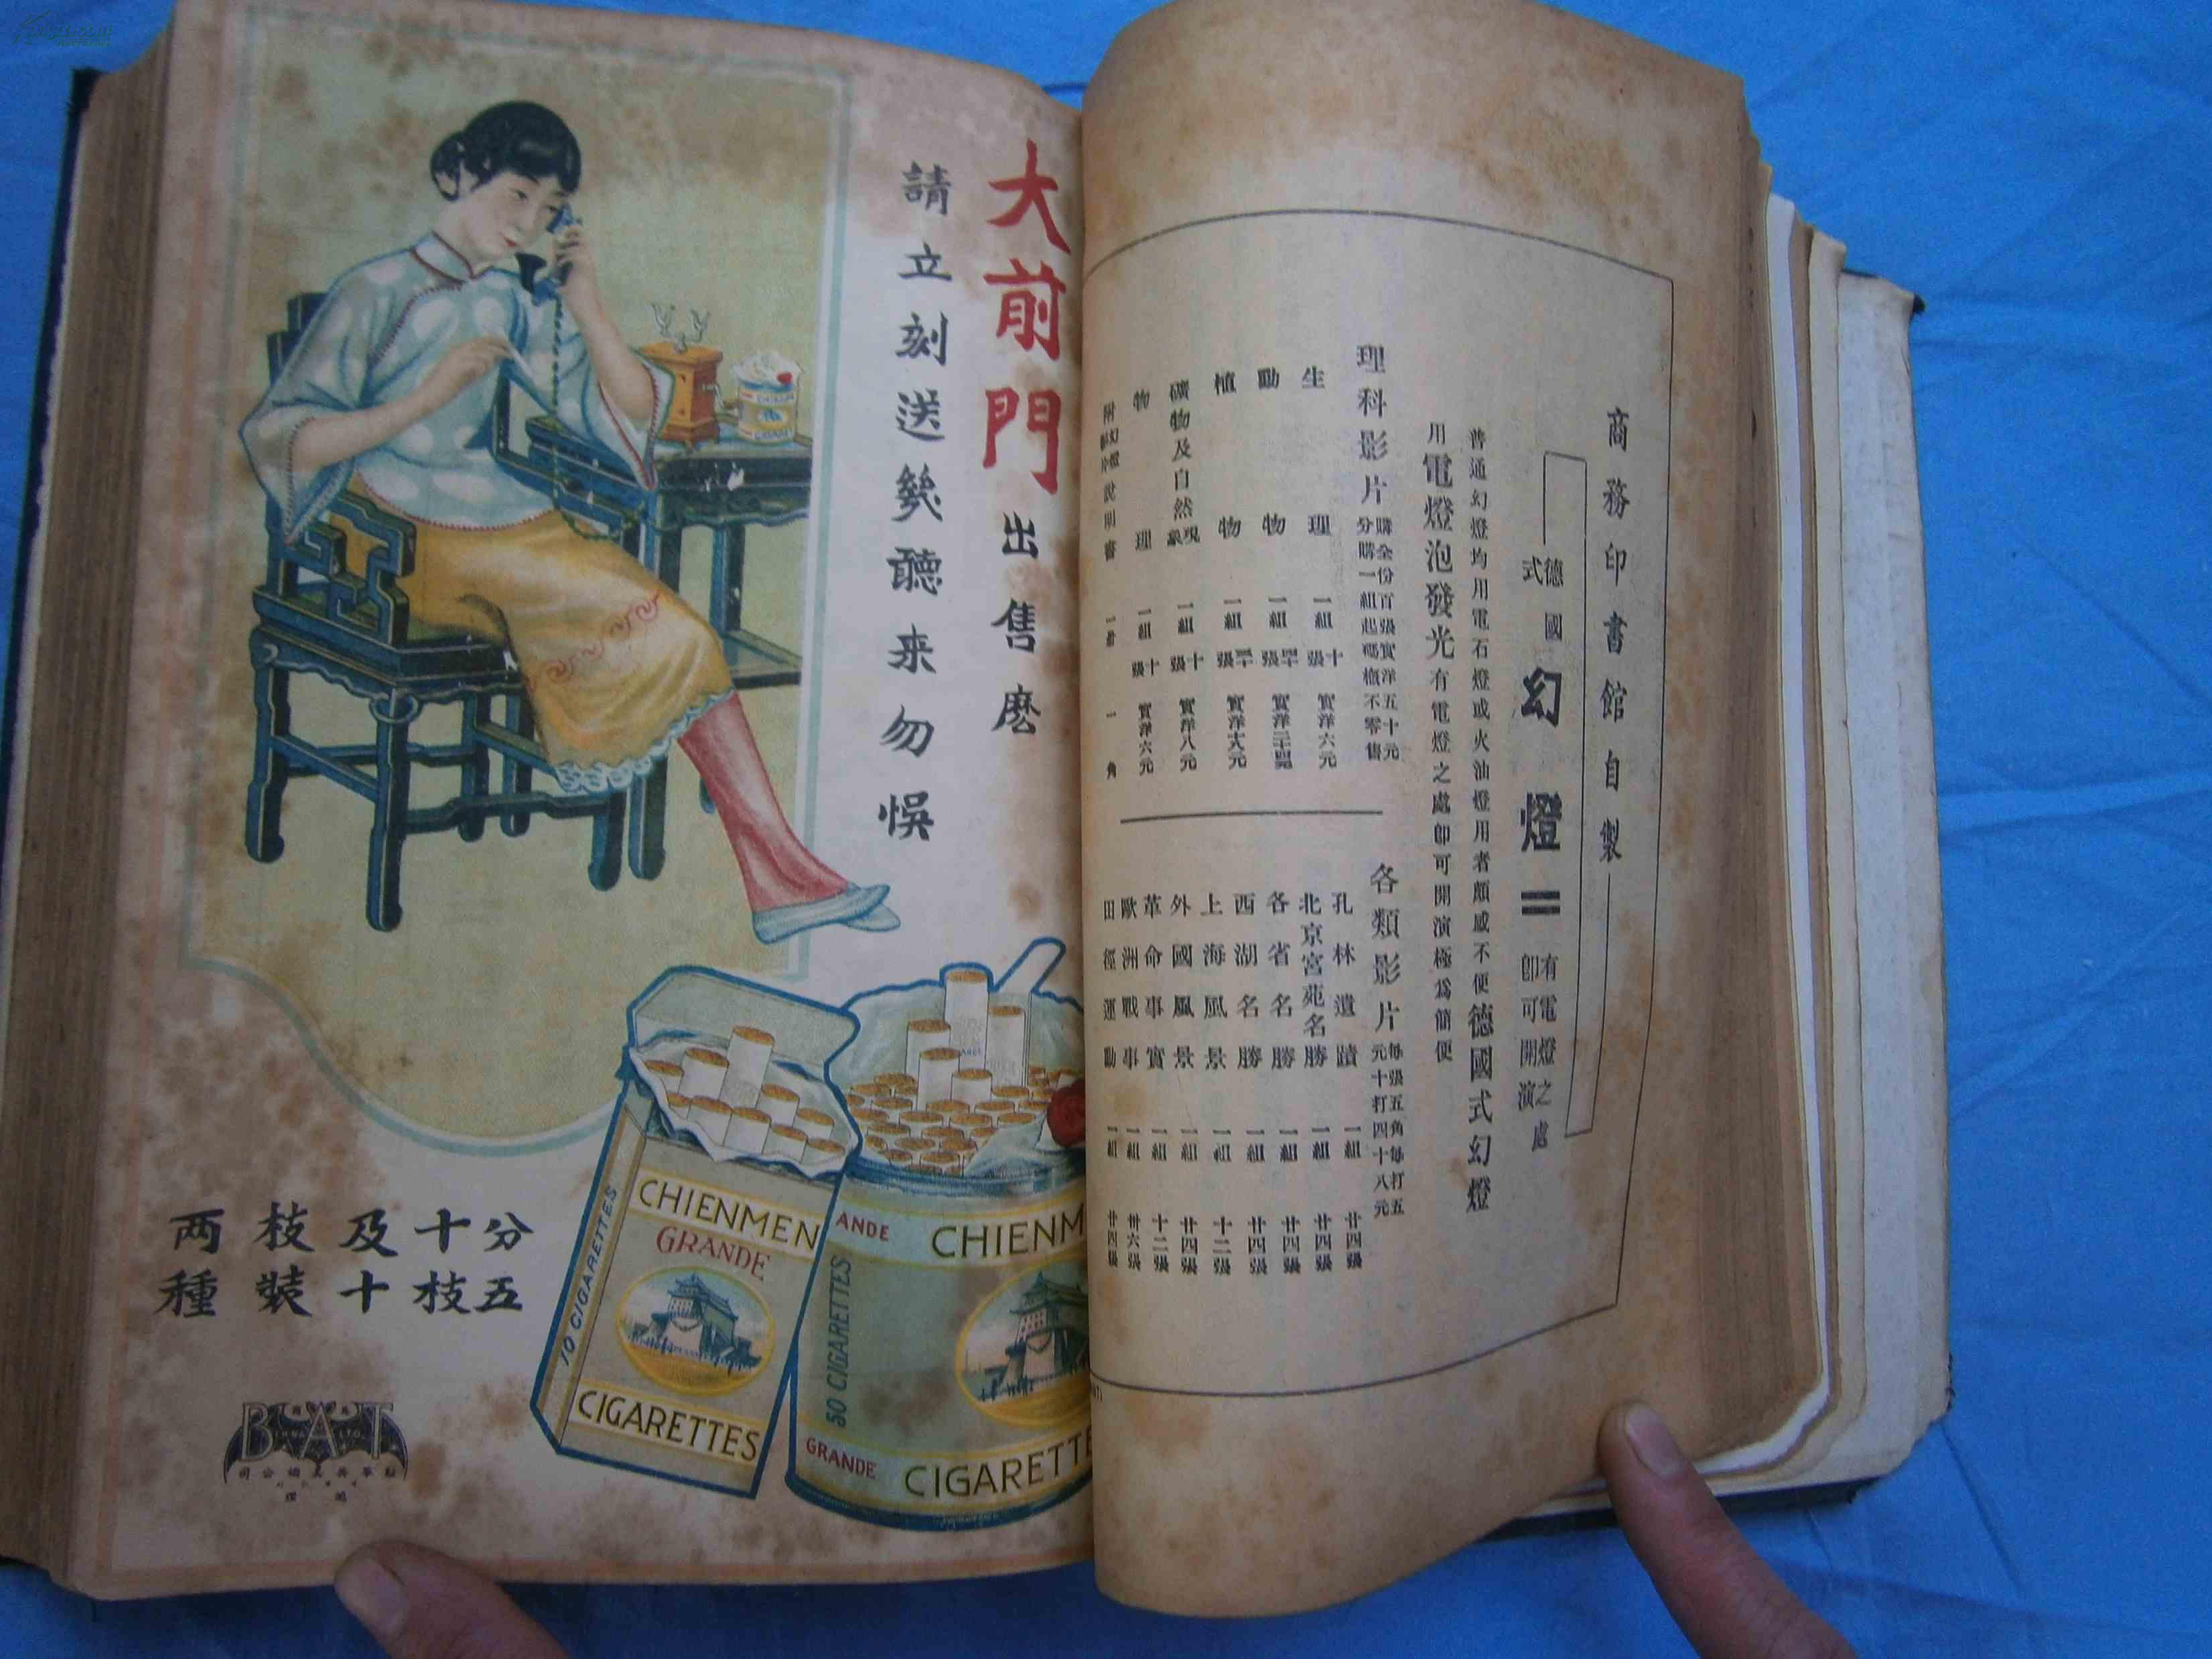 大前門出售麽
請立刻送幾聽来勿悞
分五
十枝
及十
枝裝
两種
CHIENMEN
GRANDE
CIGARETTES
10 CIGARETTES
ANDE
CHIENM
50 CIGARETTES
GRANDE
CIGARETTE
BAT
商務印書館自製
德國式
幻燈
有電燈之處
即可開演
普通幻燈均用電石燈或火油燈用者頗感不便德國式幻燈
用電燈泡發光有電燈之處即可開演極爲簡便
理科影片
購全份百張實洋五十元
分購一組起碼槪不零售
生理 一組 十張 實洋六元
動物 一組 四十張
植物 一組
礦物及自然現象 一組 十張 實洋八元
物理 一組 十張 實洋六元
附幻燈影片說明書 一册 一角
各類影片
每張五角每打五
元十打四十八元
孔林遺蹟 一組 廿四張
北京宮苑名勝 一組 廿四張
各省名勝 一組 廿四張
西湖名勝 一組 廿四張
上海風景 一組 十二張
外國風景 一組 廿四張
革命事實 一組 十二張
歐洲戰事 一組 卅六張
田徑運動 一組 廿四張